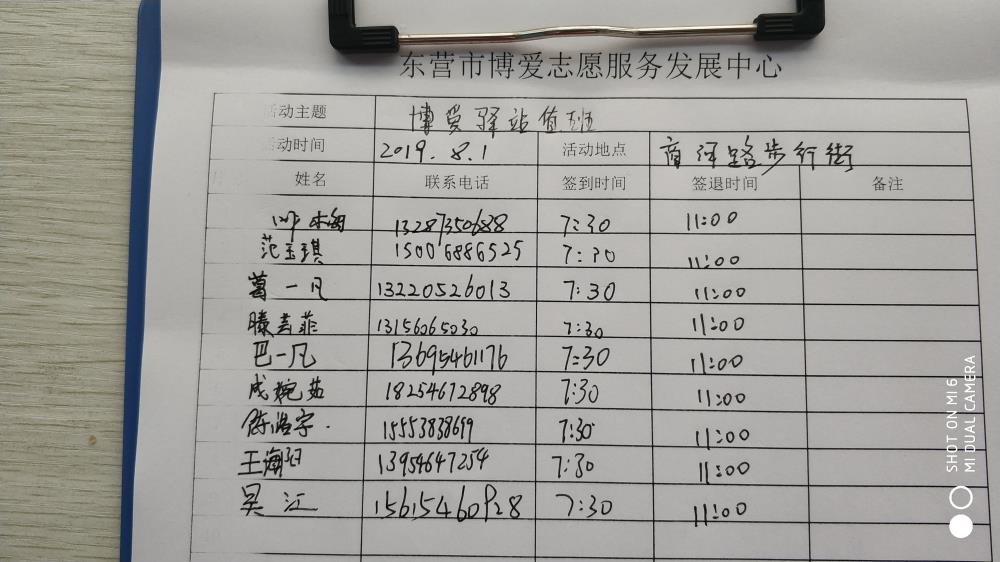 东营市博爱志愿服务发展中心
活动主题 博爱驿站值班
活动时间 2019.8.1 活动地点 商河路步行街
姓名 联系电话 签到时间 签退时间 备注
13287350688 7:30 11:00
范玉琪 15006886525 7:30 11:00
葛一凡 13220526013 7:30 11:00
滕芸菲 13156065030 7:30 11:00
巴一凡 13695461176 7:30 11:00
成婉茹 18254672898 7:30 11:00
陈浩宇. 15553838699 7:30 11:00
王海阳 13954647254 7:30 11:00
吴江 15615460928 7:30 11:00
SHOT ON MI 6
MI DUAL CAMERA